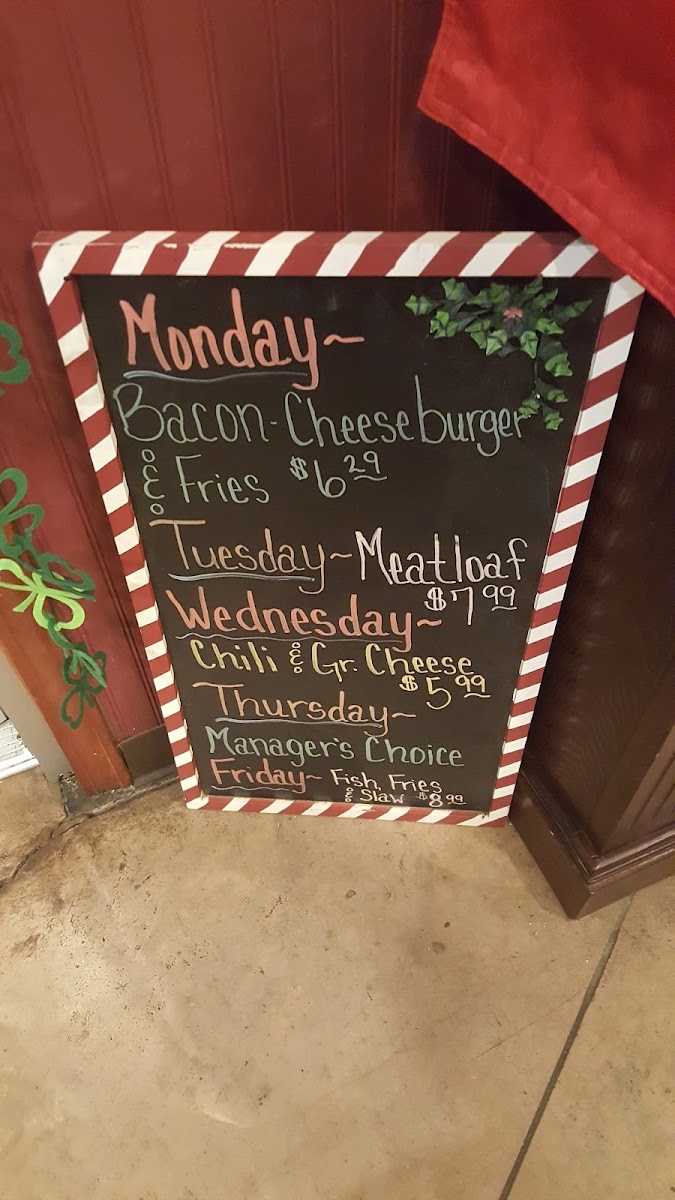 Monday~
Bacon-Cheeseburger
& Fries $6.29
Tuesday~ Meatloaf
$7.99
Wednesday~
Chili & Gr. Cheese
$5.99
Thursday~
Manager's Choice
Friday~ Fish, Fries
& Slaw $8.99